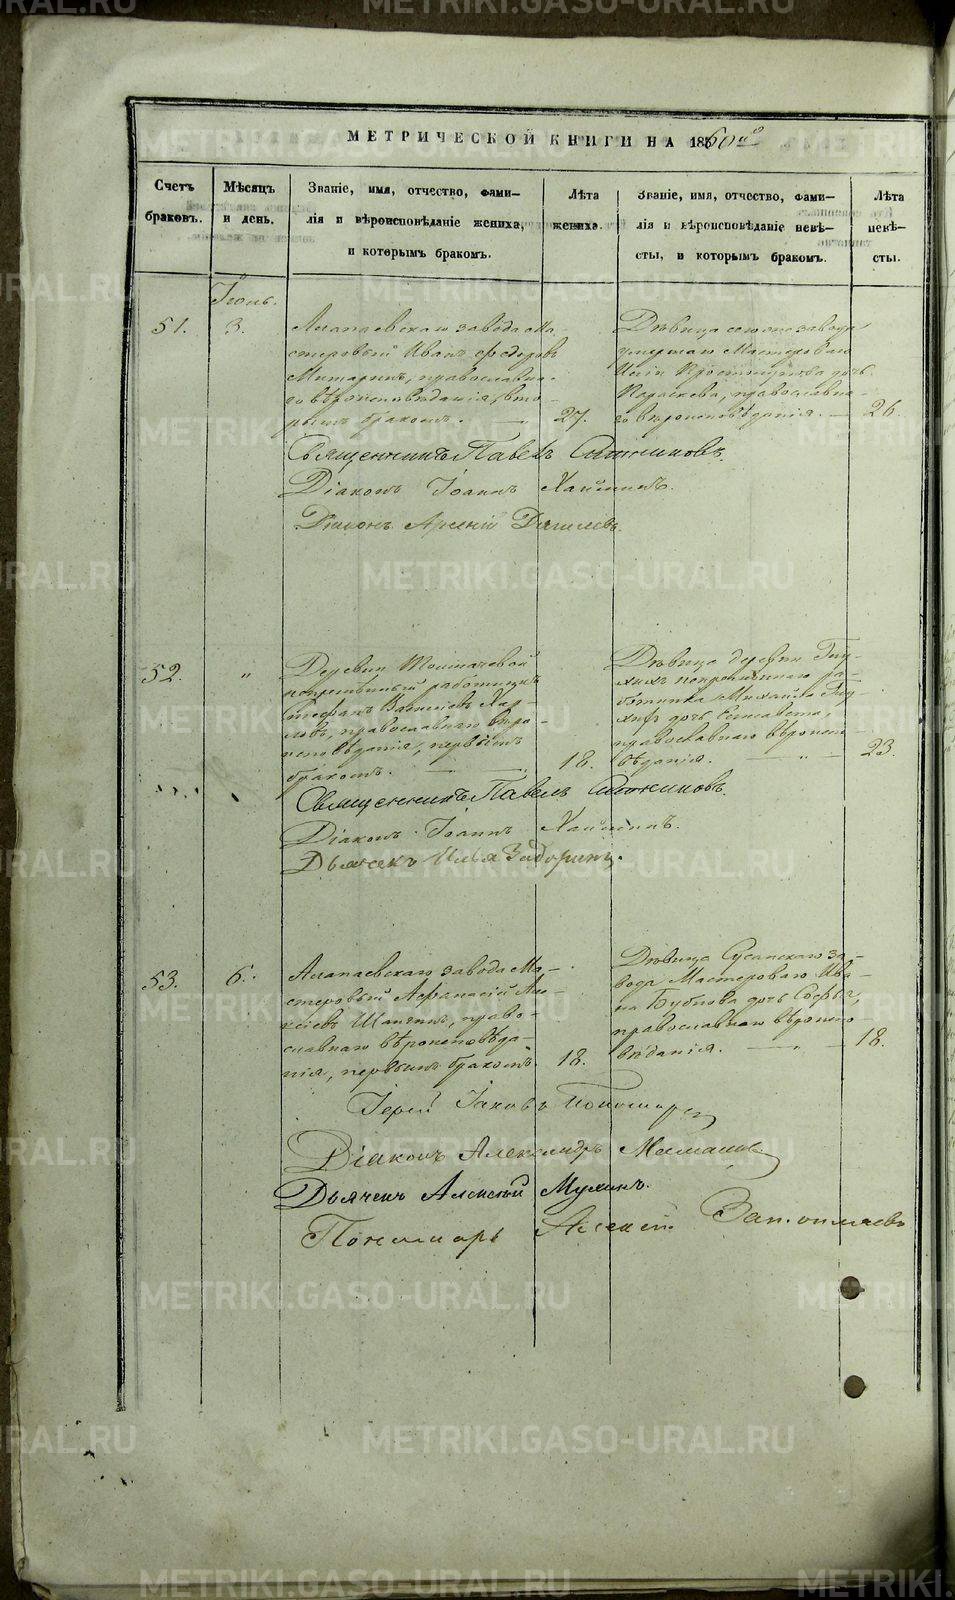 МЕТРИЧЕСКОЙ КНИГИ НА 1860й
Счетъ
браковъ.
Мѣсяцъ
и день.
Званіе, имя, отчество, фами-
лія и вѣроисповѣданіе жениха,
и которымъ бракомъ.
Лѣта
жениха.
Званіе, имя, отчество, фами-
лія и вѣроисповѣданіе невѣ-
сты, и которымъ бракомъ.
Лѣта
невѣ-
сты.
Іюнь.
51.
3.
Алапаевскаго завода Ма-
стеровый Иванъ Ѳедоровъ
православна-
го вѣроисповѣданія, вто-
рымъ бракомъ.
27.
Дѣвица завода
умершаго Мастероваго
дочь
Параскева, православна-
го вѣроисповѣданія.
26.
Священникъ Павелъ
Діаконъ Іоаннъ
Діаконъ Арсеній
52.
"
Деревни Толмачевой
непремѣнный работникъ
Стефанъ Васильевъ Хар-
ловъ, православнаго вѣро-
исповѣданія, первымъ
бракомъ.
18.
Дѣвица деревни Глу-
хихъ непремѣннаго ра-
ботника Михаила Глу-
хихъ дочь Елисавета,
православнаго вѣроиспо-
вѣданія.
23.
Священникъ Павелъ
Діаконъ Іоаннъ
Дьячекъ Илья Задоринъ.
53.
6.
Алапаевскаго завода Ма-
стеровый Аѳанасій Але-
ксѣевъ право-
славнаго вѣроисповѣда-
нія, первымъ бракомъ.
18.
Дѣвица Сусанскаго за-
вода Мастероваго Ива-
на Бубнова дочь Софья,
православнаго вѣроиспо-
вѣданія.
18.
Іерей Іаковъ Пономаревъ
Діаконъ Александръ
Дьячекъ Алексѣй Мухинъ.
Пономарь Алексѣй
METRIKI.GASO-URAL.RU